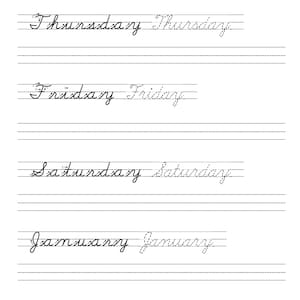 Thursday Thursday
Friday Friday
Saturday Saturday
January January